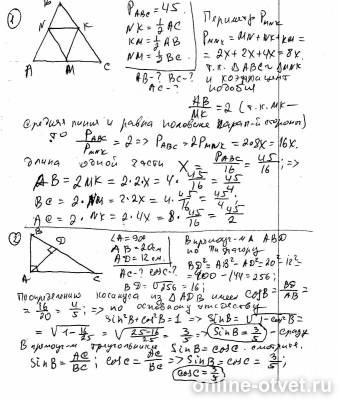 ①
B
N
K
A
M
C
P_ABC = 45
NK = 1/2 AC
KM = 1/2 AB
NM = 1/2 BC
AB-? BC-?
AC-?
Периметр P_MNK
P_MNK = MN + NK + KM =
= 2x + 2x + 4x = 8x.
т.к. △ABC ~ △MNK
и коэффициент
подобия
AB/MK = 2 (т.к. MK —
средняя линия и равна половине сторона)
то P_ABC/P_MNK = 2 => P_ABC = 2P_MNK = 2·8x = 16x.
Длина одной части x = P_ABC/16 = 45/16; =>
AB = 2MK = 2·2x = 4·45/16 = 45/4
BC = 2·NM = 2·2x = 4·45/16 = 45/4.
AC = 2·NK = 2·4x = 8·45/16 = 45/2
②
B
D
A
C
∠A = 90°
AB = 20см
AD = 12см.
AC-? cosC-?
В прямоуг-м △ ABD
по Пифагору
BD² = AB² - AD² = 20² - 12² =
= 400 - 144 = 256;
BD = √256 = 16;
По определению косинуса из △ADB имеем cosB = BD/AB =
= 16/20 = 4/5; => по основному тождеству
sin²B + cos²B = 1 -> sinB = √1-cos²B =
= √1-16/25 = √25-16/25 = 3/5 => sinB = 3/5 -
В прямоуг-м треугольнике sinB = cosC.
sinB = AC/BC; cosC = AC/BC => sinB = cosC = 3/5;
cosC = 3/5
online-otvet.ru